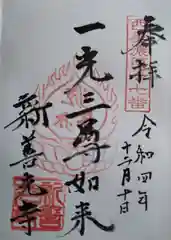 奉拝
令和四年
十二月十日
一光三尊如来
新善光寺